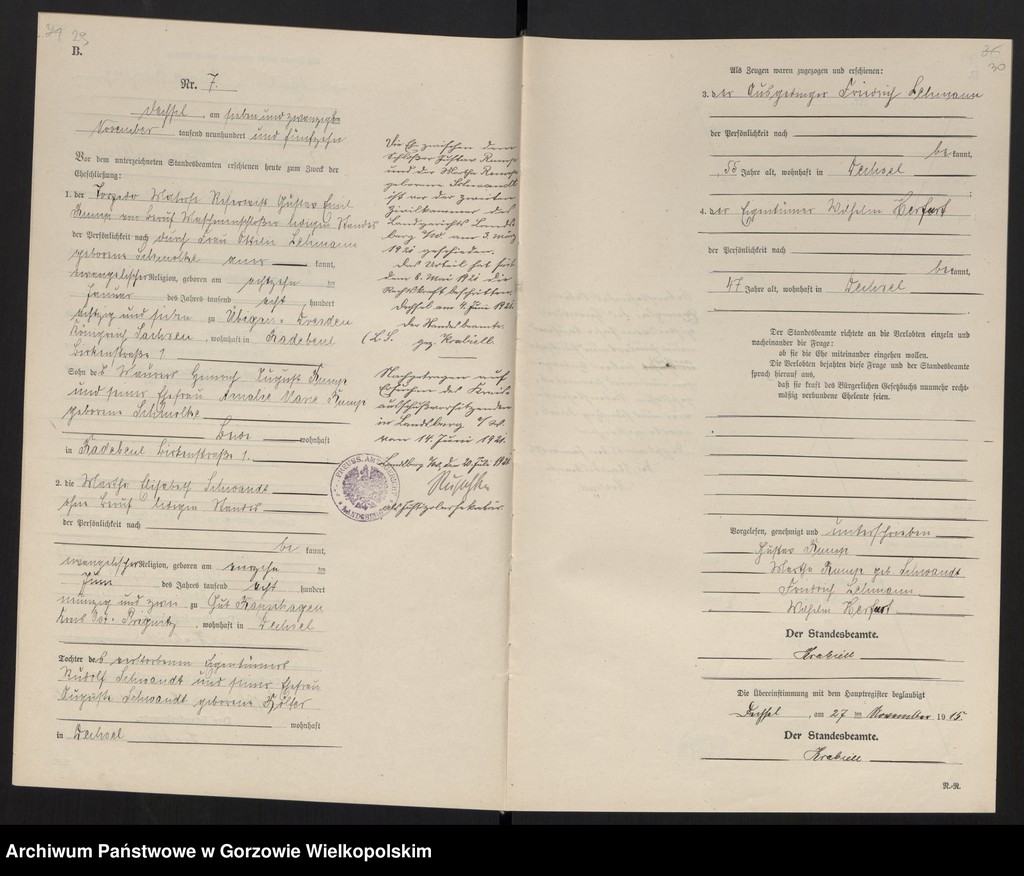 29
B.
Nr. 7.
Dechsel, am sieben und zwanzigsten
November tausend neunhundert und fünfzehn
Vor dem unterzeichneten Standesbeamten erschienen heute zum Zweck der
Eheschließung:
1. der Torpedo Matrose Reservist Gustav Emil
Rumpe von Beruf Maschinenschlosser ledigen Standes
der Persönlichkeit nach durch Frau Lehmann
geborene aner kannt,
evangelischer Religion, geboren am achtzehn ten
Januar des Jahres tausend acht hundert
achtzig und sieben zu Übigau-Dresden
Königreich Sachsen, wohnhaft in Radebeul
Birkenstraße 1
Sohn des Maurers Heinrich August Rumpe
und seiner Ehefrau Amalie Marie Rumpe
geborene
Beide wohnhaft
in Radebeul Birkenstraße 1.
2. die Martha Elisabeth Schwandt
ohne Beruf ledigen Standes
der Persönlichkeit nach
be kannt,
evangelischer Religion, geboren am ten
Juni des Jahres tausend acht hundert
neunzig und zwei zu Gut
Prignitz, wohnhaft in Dechsel
Tochter des verstorbenen Eigentümers
Rudolf Schwandt und seiner Ehefrau
Auguste Schwandt geborene
wohnhaft
in Dechsel
Die Ehe zwischen dem
Schlosser Gustav Rumpe
und der Martha Rumpe
geborene Schwandt
ist vor der zweiten
Zivilkammer des
Landgerichts Lands-
berg a/W. am 3. März
1921 geschieden.
Das Urteil hat seit
dem 6. Mai 1921 die
Rechtskraft beschritten.
Dechsel am 4. Juni 1921.
Der Standesbeamte.
(L.S. gez. Krabiell.
Nachgetragen auf
Ersuchen des Kreis-
ausschußvorsitzenden
in Landsberg a/W.
vom 14. Juni 1921.
Landsberg a/W, den 20. Juli 1921.
30
Als Zeugen waren zugezogen und erschienen:
3. der Ausgedinger Friedrich Lehmann
der Persönlichkeit nach
be kannt,
55 Jahre alt, wohnhaft in Dechsel
4. der Eigentümer Wilhelm Herfurt
der Persönlichkeit nach
be kannt,
47 Jahre alt, wohnhaft in Dechsel
Der Standesbeamte richtete an die Verlobten einzeln und
nacheinander die Frage:
ob sie die Ehe miteinander eingehen wollen.
Die Verlobten bejahten diese Frage und der Standesbeamte
sprach hierauf aus,
daß sie kraft des Bürgerlichen Gesetzbuchs nunmehr recht-
mäßig verbundene Eheleute seien.
Vorgelesen, genehmigt und unterschrieben
Gustav Rumpe
Martha Rumpe geb. Schwandt
Friedrich Lehmann
Wilhelm Herfurt
Der Standesbeamte.
Krabiell
Die Übereinstimmung mit dem Hauptregister beglaubigt
Dechsel, am 27 ten November 1915.
Der Standesbeamte.
Krabiell
N.-R.
Archiwum Państwowe w Gorzowie Wielkopolskim